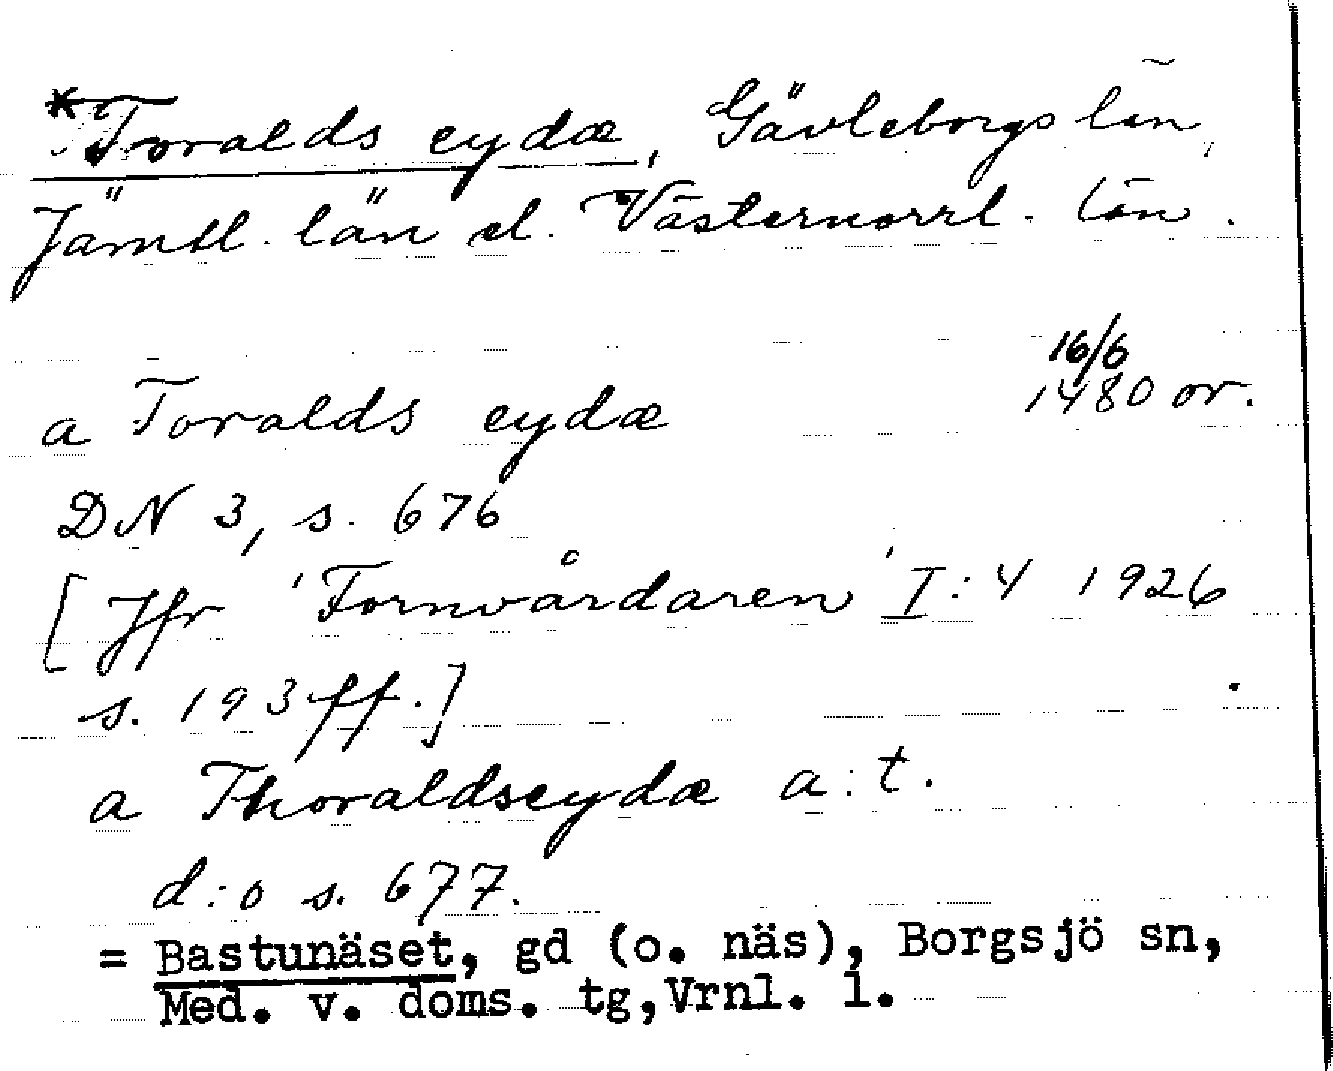 *Toralds eydæ, Gävleborgs län,
Jämtl. län el. Västernorrl. län.
16/6
a Toralds eydæ 1480 or.
DN 3, s. 676
[Jfr 'Fornvårdaren' I:4 1926
s. 193 ff.]
a Thoraldseydæ a:t.
d:o s. 677.
= Bastunäset, gd (o. näs), Borgsjö sn,
Med. v. doms. tg,Vrnl. l.